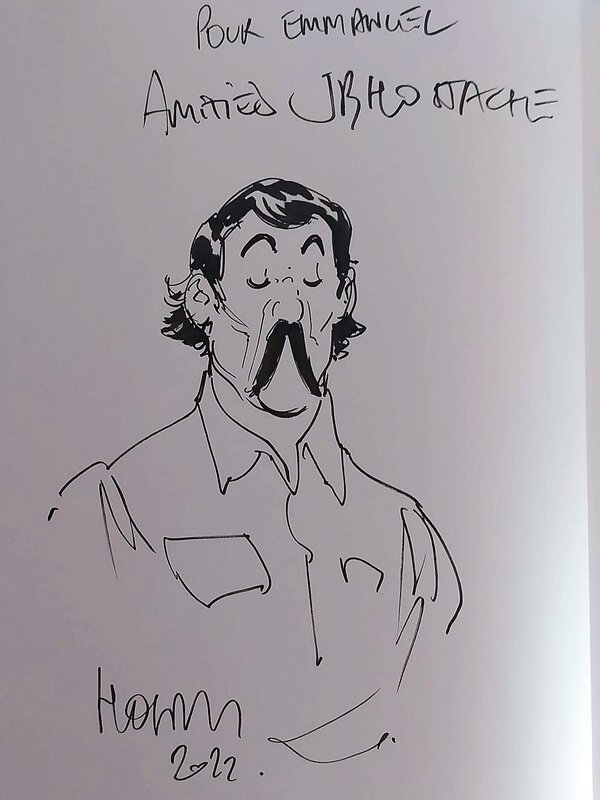 POUR EMMANUEL
AMITIÉS JB HOSTACHE
2022.